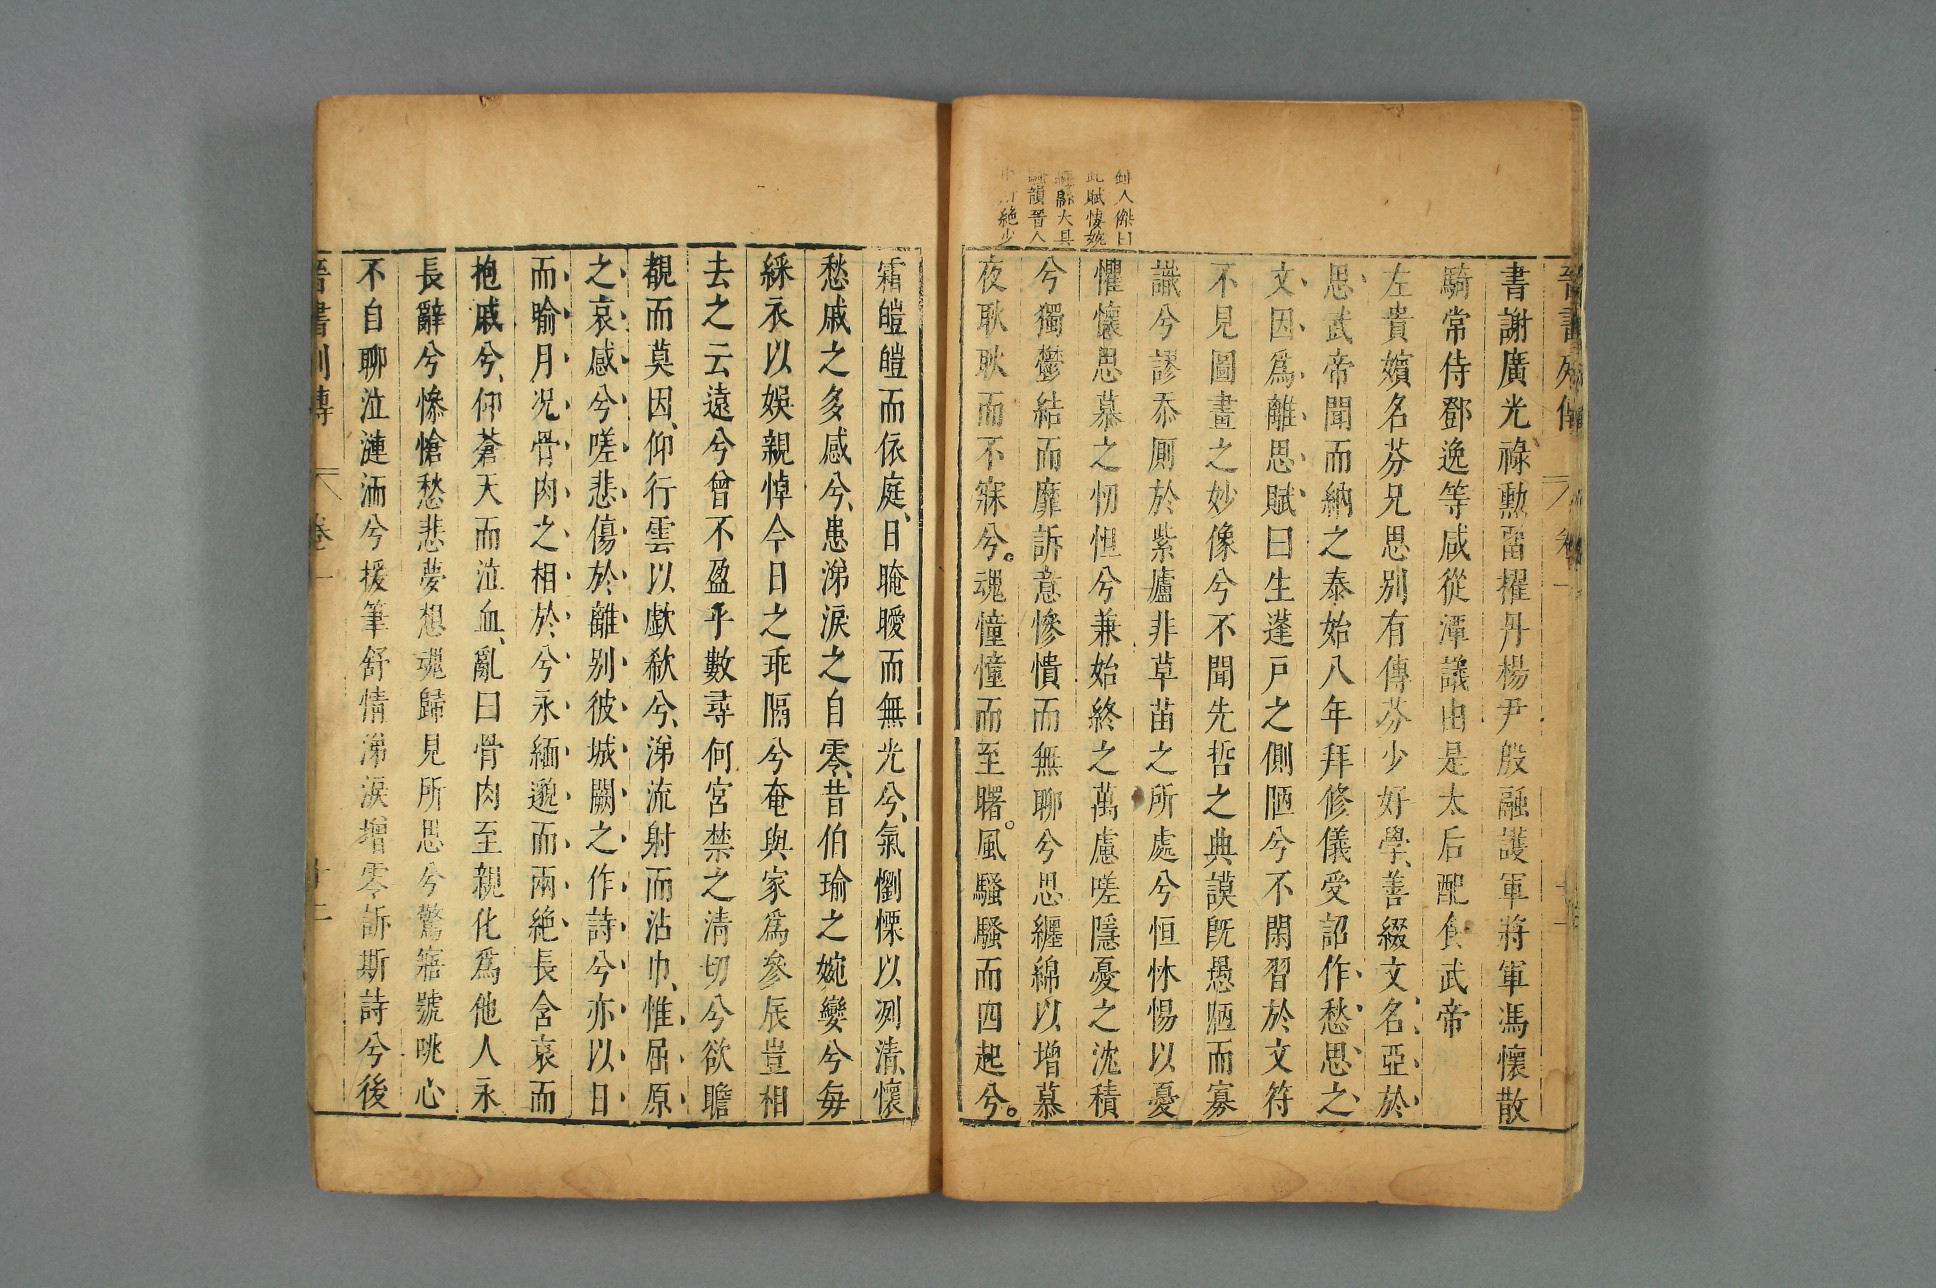 晉書列傳 卷一
書謝廣光祿勳畱擢丹楊尹殷融護軍將軍馮懷散
騎常侍鄧逸等咸從潭議由是太后配食武帝
左貴嬪名芬兄思别有傳芬少好學、善綴文名亞於
思武帝聞而納之泰始八年拜修儀受詔作愁思之
文因爲離思賦曰生蓬戸之側陋兮不閑習於文符
不見圖畫之妙像兮不聞先哲之典謨旣愚陋而寡
識兮謬忝厠於紫廬非草苗之所處兮恒怵惕以憂
懼懷思慕之忉怛兮兼始終之萬慮嗟隱憂之沈積
兮獨鬱結而靡訴意慘憒而無聊兮思纏綿以增慕
夜耿耿而不寐兮。魂憧憧而至曙。風騷騷而四起兮。
人傑曰
此賦悽婉
緜大具
韻晉人
絶少
霜皚皚而依庭、日晻曖而無光兮、氣懰慄以冽清、懷
愁戚之多感兮、患涕淚之自零、昔伯瑜之婉孌兮每
綵衣以娛親悼今日之乖隔兮奄與家爲參辰豈相
去之云遠兮曾不盈乎數尋何宮禁之清切兮欲瞻
覩而莫因、仰行雲以歔欷兮、涕流射而沾巾、惟屈原
之哀感兮嗟悲傷於離别彼城闕之作詩兮亦以日
而喻月况骨肉之相於兮永緬邈而兩絶長含哀而
抱戚兮、仰蒼天而泣血、亂曰骨肉至親化爲他人永
長辭兮慘愴愁悲夢想魂歸見所思兮驚寤號咷心
不自聊泣漣洏兮援筆舒情涕淚增零訴斯詩兮後
晉書列傳 卷一